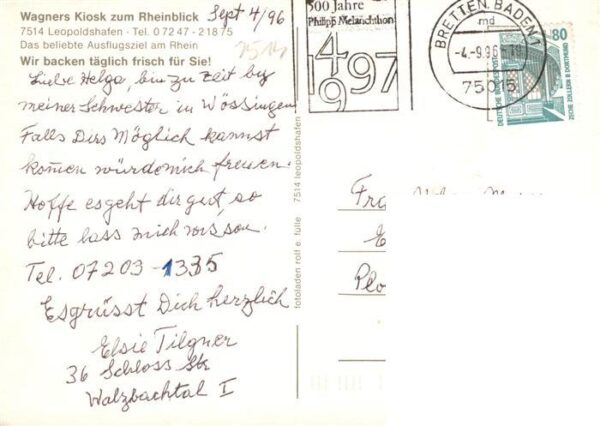 Wagners Kiosk zum Rheinblick
7514 Leopoldshafen - Tel. 0 72 47 - 218 75
Das beliebte Ausflugsziel am Rhein
Wir backen täglich frisch für Sie!
Sept 4/96
7514
Liebe Helga, bin zu Zeit by
meiner Schwester in Wössingen
Falls Dirs Möglich kannst
komen würdemich freuen.
Hoffe esgeht dir gut, so
bitte lass mich
Tel. 07203-1335
Esgrüsst Dich herzlich
Elsie Tilgner
36 Schloss Str
Walzbachtal I
fotoladen rolf e. fülle 7514 leopoldshafen
500 Jahre
Philipp Melanchthon
1497
BRETTEN, BADEN 1
md
-4.-9.96-18
75015
DEUTSCHE BUNDESPOST
80
ZECHE ZOLLERN II DORTMUND
Fra
Plo